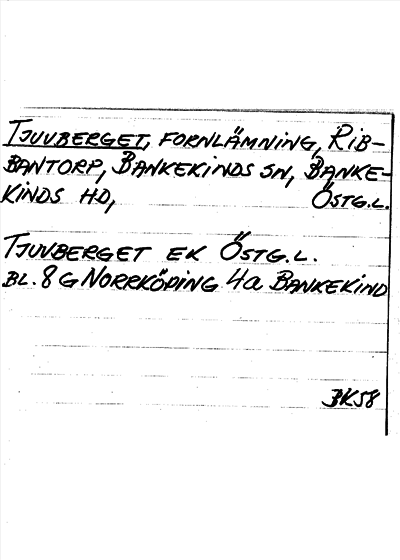 TJUVBERGET, FORNLÄMNING, RIB-
BANTORP, BANKEKINDS SN, BANKE-
KINDS HD, ÖSTG.L.
TJUVBERGET EK ÖSTG.L.
BL. 8 G NORRKÖPING 4a BANKEKIND
BK58